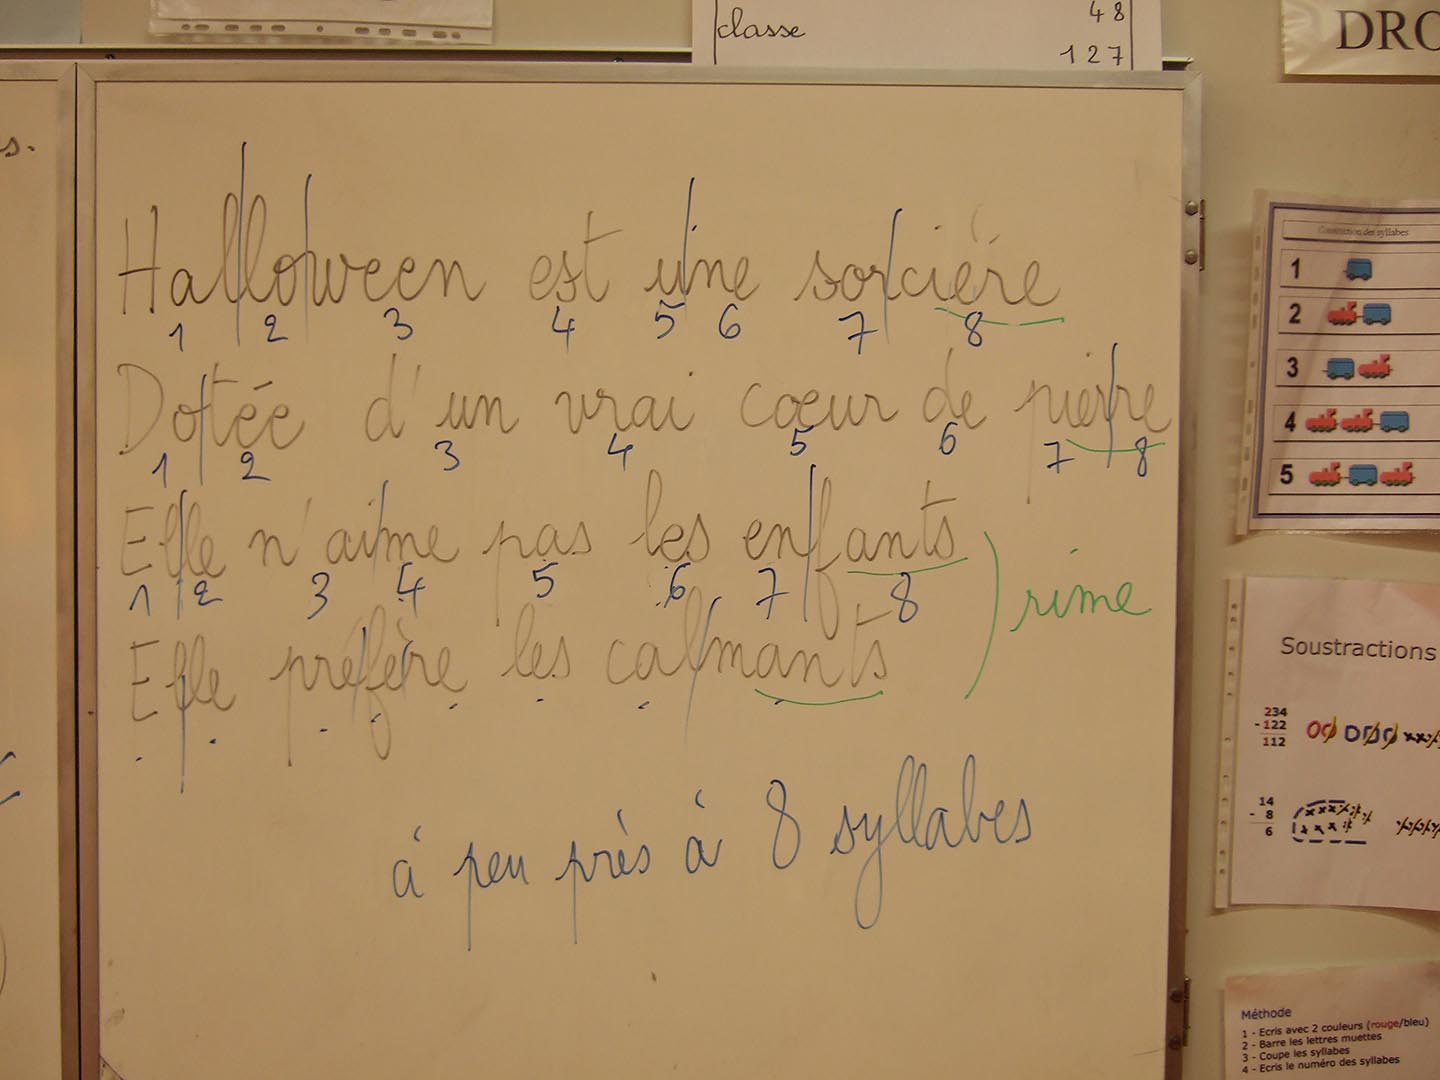 classe 48
127
DRO
s.
Halloween est une sorcière
1 2 3 4 5 6 7 8
Dotée d'un vrai cœur de pierre
1 2 3 4 5 6 7 8
Elle n'aime pas les enfants
1 2 3 4 5 6 7 8
Elle préfère les calmants
rime
à peu près à 8 syllabes
Construction des syllabes
1
2
3
4
5
Soustractions
234
-122
112
14
- 8
6
Méthode
1 - Ecris avec 2 couleurs (rouge/bleu)
2 - Barre les lettres muettes
3 - Coupe les syllabes
4 - Ecris le numéro des syllabes